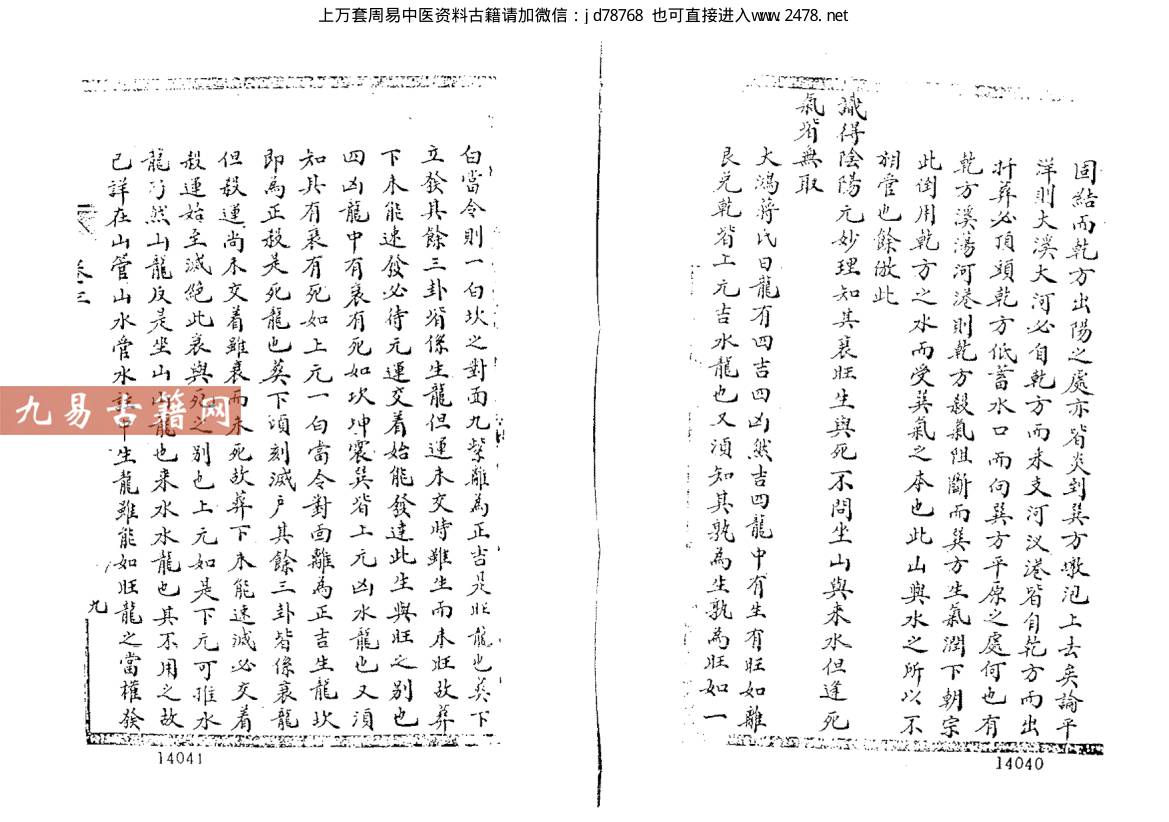 上万套周易中医资料古籍请加微信：jd78768 也可直接进入www.2478.net
固結而乾方出陽之處亦皆炎到巽方墩泡上去矣論平
洋則大溪大河必自乾方而来支河汊港皆自乾方而出
扦葬必頂頭乾方低蓄水口而向巽方平原之處何也有
乾方溪蕩河港則乾方殺氣阻斷而巽方生氣潤下朝宗
此倒用乾方之水而受巽氣之本也此山與水之所以不
相管也餘倣此
識得陰陽元妙理知其衰旺生與死不問坐山與来水但逢死
氣皆無取
大鴻蔣氏曰龍有四吉四凶然吉四龍中有生有旺如離
艮兌乾皆上元吉水龍也又須知其孰為生孰為旺如一
14040
白當令則一白坎之對面九紫離為正吉是旺龍也葬下
立發其餘三卦皆係生龍但運未交時雖生而未旺故葬
下未能速發必待元運交着始能發達此生與旺之別也
四凶龍中有衰有死如坎坤震巽皆上元凶水龍也又須
知其有衰有死如上元一白當令對面離為正吉生龍坎
即為正殺是死龍也葬下頃刻滅户其餘三卦皆係衰龍
但殺運尚未交着雖衰而未死故葬下未能速滅必交着
殺運始至滅絕此衰與死之別也上元如是下元可推水
龍乃然山龍反是坐山山龍也来水水龍也其不用之故
已詳在山管山水管水中生龍雖能如旺龍之當權發
卷三
九
14041
九易古籍网